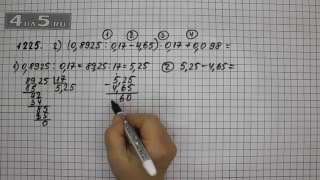 4DA5.RU
1 2 3 4
1225. 2) (0,8925 : 0,17 - 4,65) · 0,17 + 0,098 =
1) 0,8925 : 0,17 = 89,25 : 17 = 5,25 2) 5,25 - 4,65 =
89,25 17
85 5,25
42
34
85
85
0
5,25
- 4,65
0,60